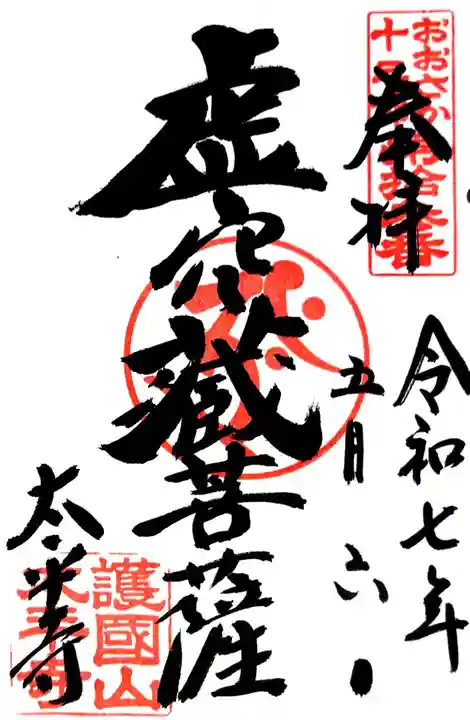 奉拝
おおさか
十三
令和七年
五月六日
虚空蔵菩薩
太平寺
護國山
太平寺